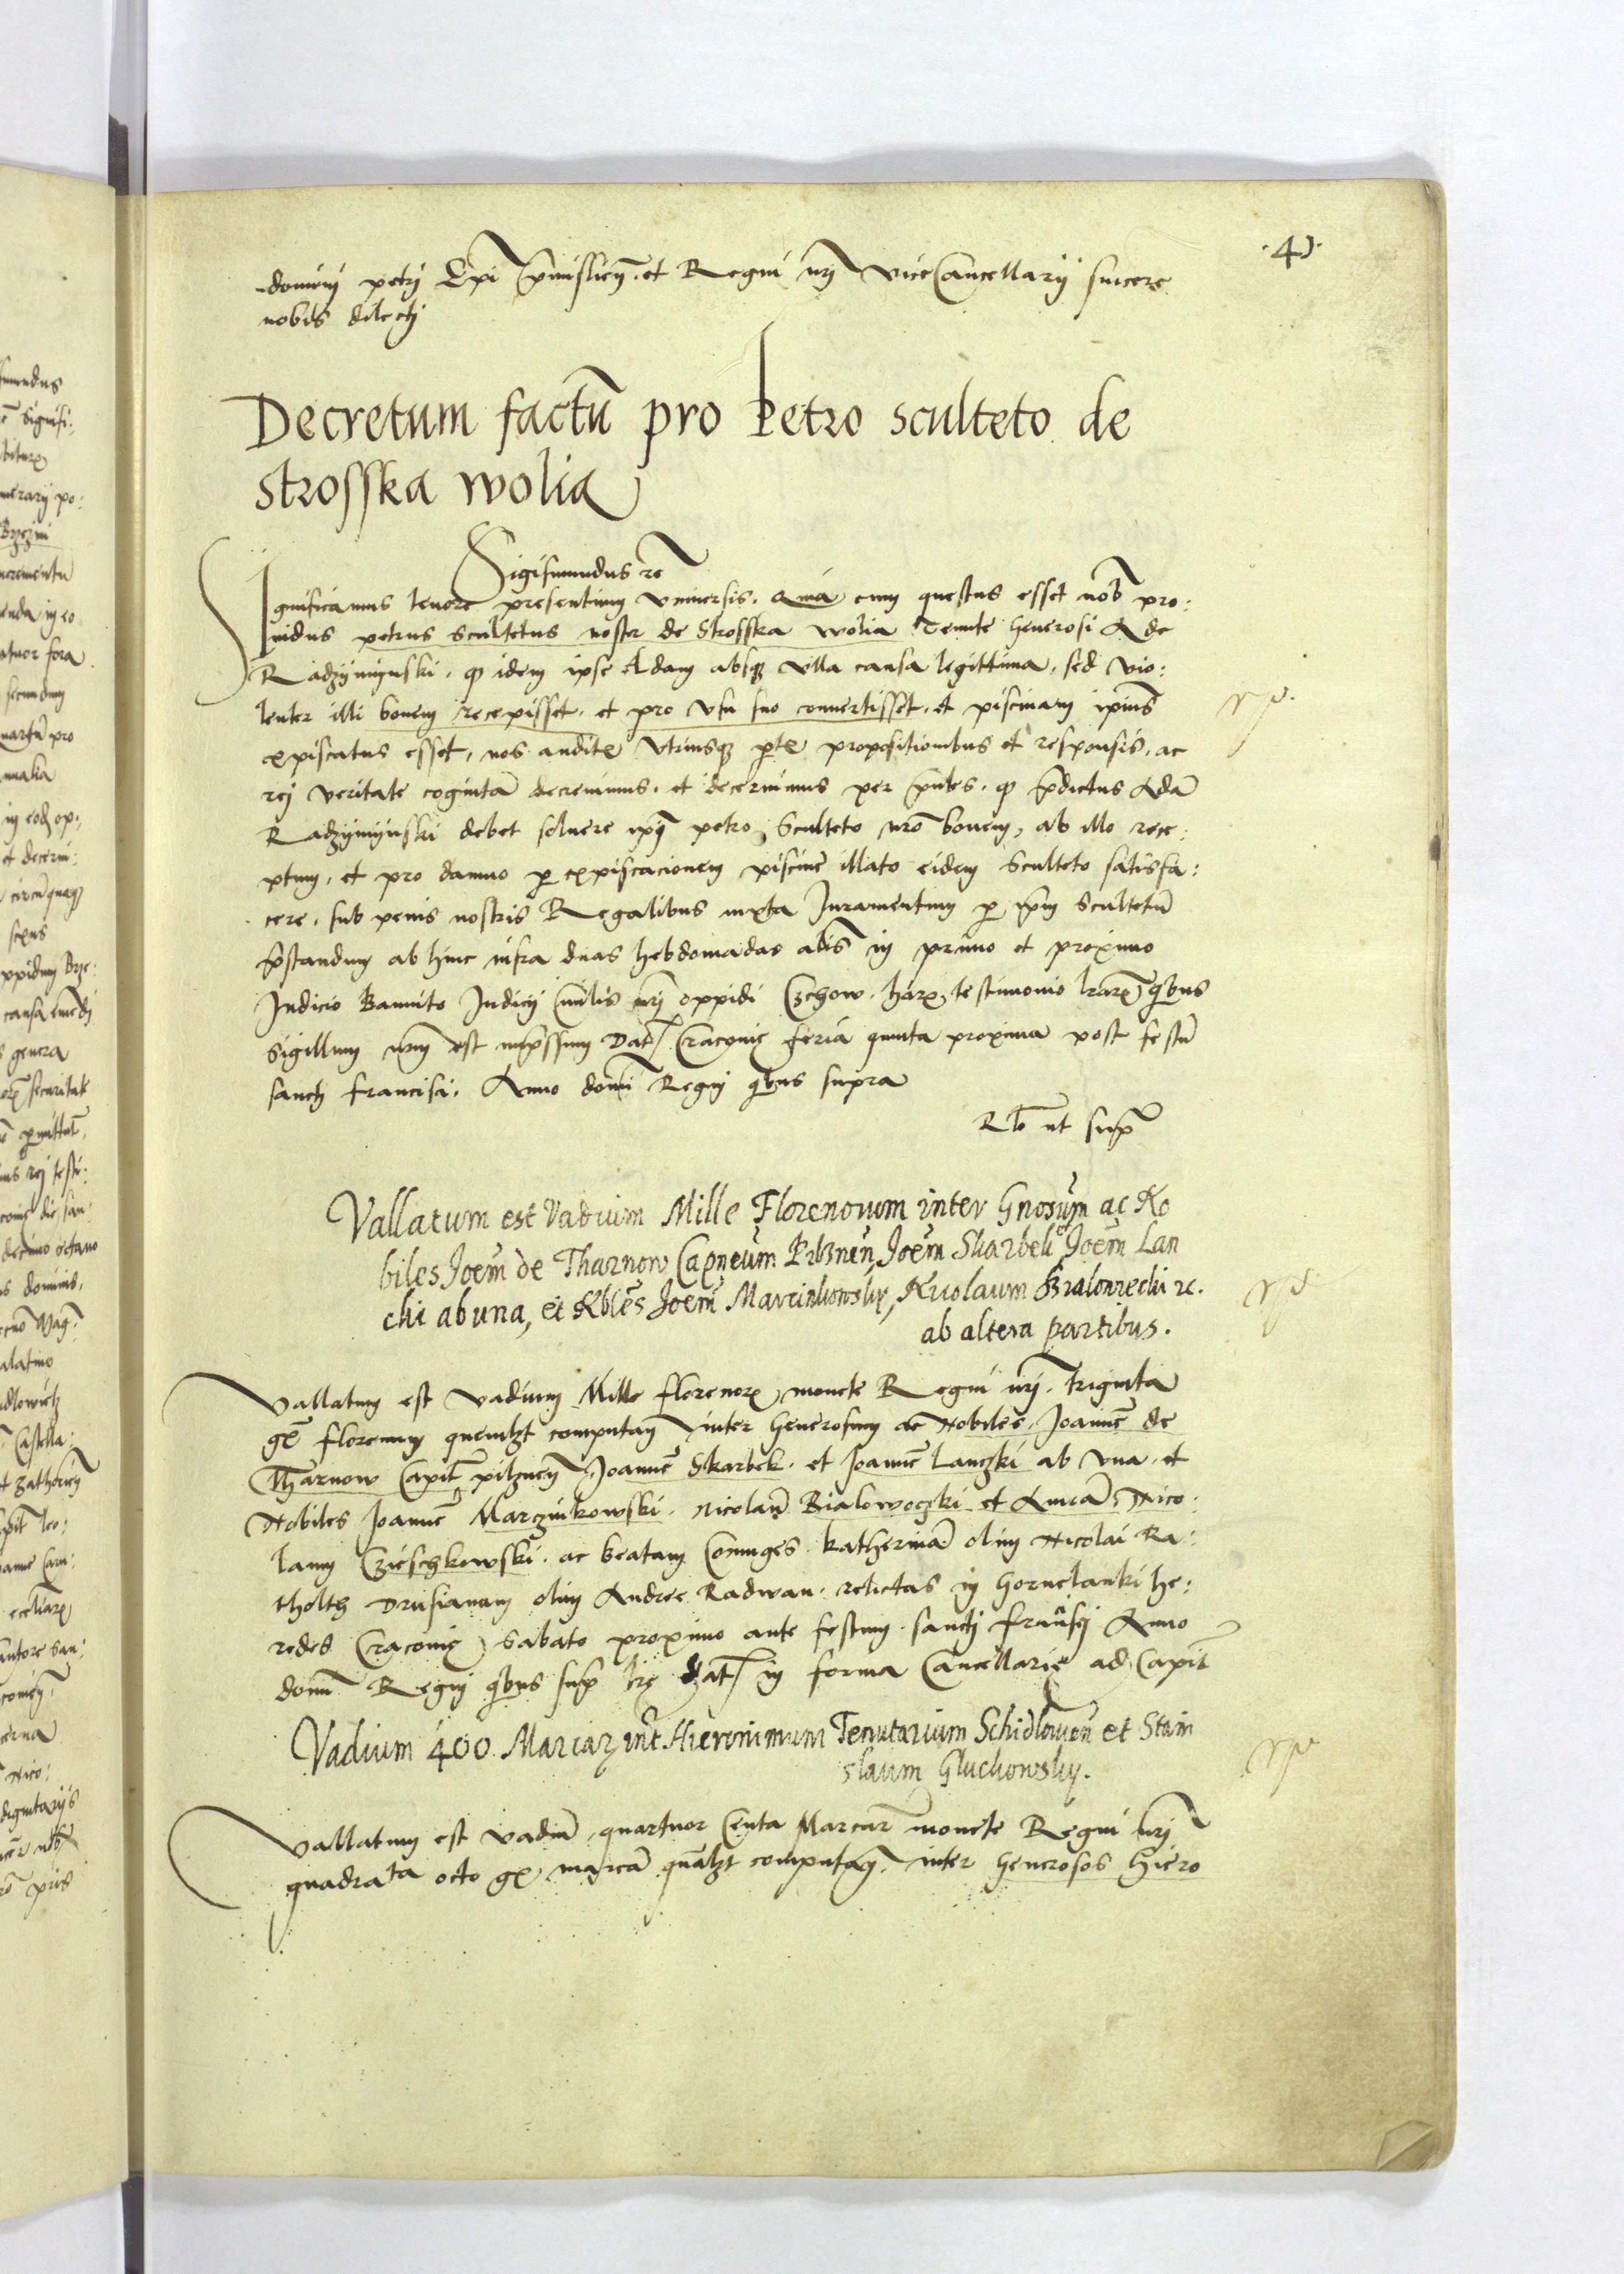 .41.
domini petri Epi premislien. et Regni nri ViceCancellarij sincere
nobis dilecti
Decretum factū pro Petro sculteto de
strosska wolia
Sigismundus rē
Significamus tenore presentium Vniversis. Quia cum questus esset nobis pro:
vidus petrus scultetus noster de Strosska wolia Tenute Generosi Ade
Radzyminski. q idem ipse Adam absq3 vlla causa legittima, sed vio:
lenter illi bovem recepisset. et pro vsu suo convertisset. et piscinam ipius
expiscatus esset, nos auditis Vtriusq3 ptis propositionibus et responsis, ac
rej veritate cognita decrevimus. et decernimus per pntes. q pdictus Adā
Radzyminski debet solvere ipi petro Sculteto nro bovem, ab illo rece:
ptum, et pro damno p expiscacionem piscine illato eidem Sculteto satisfa:
cere. sub penis nostris Regalibus iuxta Iuramentum p ipm Scultetū
pstandum ab hinc infra duas hebdomadas alis in primo et proximo
Iudicio Bannito Iudicij Civilis nri oppidi Czchow. harx testimonio lrarx qbus
Sigillum nrm est impssum Dat Cracovie feria quinta proxima post festū
sancti Francisci. Anno domi Regni qbus supra
Rlō ut sup
Vallatum est Vadium Mille Florenorum inter Gnosum ac No
biles Joem de Tharnow Capneum Pilznen, Joem Skarbek, Joem Lan
cki ab una, et Nbles Joem Marcinkowsky, Nicolaum Bialowiecki rc.
ab altera partibus.
Vallatum est Vadium Mille florenorx monete Regni nri. Triginta
gē florenum quemlzt computan inter Generosum ac Nobiles, Joannē de
Tharnow Capit pilznen Joannē Skarbek. et Joannē Lanczki ab Vna. et
Nobiles Joannē Marczinkowski. Nicolaū Bialowoczki et Annā, Nico:
laum Czieschkowski. ac beatam Coniuges. katherinā olim Nicolai Ra:
tholth Drusianam olim Andree Radwan. relictas in Gornelanki he:
redes Cracovie Sabato proximo ante festum sancti Francisci Anno
domi Regni qbus sup lre dat in forma Cancellarie ad Capit
Vadium 400 Marcarz int Hieronimum Tenutarium Schidlowen et Stani
slaum Gluchowsky.
Vallatum est vadiū quartuor Centa Marcar monete Regni nri
quadrata octo gē marcā quālzt computan. inter Generosos Hiero